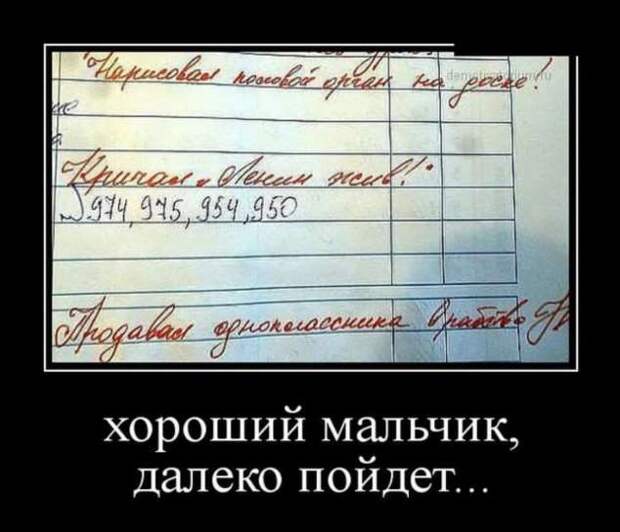 Нарисовал половой орган на доске!
Кричал „Ленин жив!"
974, 975, 954, 950
Продавал одноклассника в рабство
хороший мальчик,
далеко пойдет...